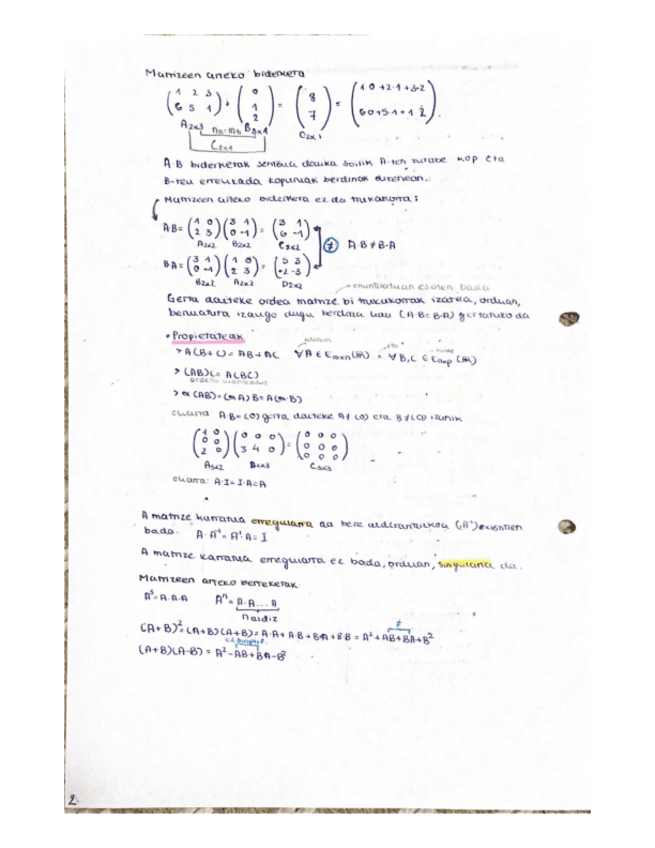 Matrizeen arteko biderketa
(1 2 3 / 6 5 1) · (0 / 1 / 2) = (8 / 7) = (1·0+2·1+3·2 / 6·0+5·1+1·2).
A2x3 na=mb B3x1 C2x1
C2x1
A·B biderketak sentsua dauka soilik A-ren zutabe kop eta
B-ren errenkada kopuruak berdinak direnean.
Matrizeen arteko biderketa ez da trukakorra:
AB = (1 0 / 2 3)(3 1 / 0 -1) = (3 1 / 6 -1)
A2x2 B2x2 C2x2
≠ A·B ≠ B·A
BA = (3 1 / 0 -1)(1 0 / 2 3) = (5 3 / -2 -3)
B2x2 A2x2 D2x2
enuntziatuan esaten bada
Gerta daiteke ordea matrize bi trukakorrak izatea, orduan,
berdina hau (A·B=B·A) gertatuko da
• Propietateak
> A(B+C) = AB+AC ∀A ∈ Emxn(R) ∧ ∀B,C ∈ Enxp(R)
eta
> (AB)C = A(BC)
ordena
> α(AB) = (αA)B = A(αB)
oharra: A·B=(0) gerta daiteke A≠(0) eta B≠(0) izanik
(1 0 / 0 0 / 2 0)(0 0 0 / 3 4 0) = (0 0 0 / 0 0 0 / 0 0 0)
A3x2 B2x3 C3x3
oharra: A·I=I·A=A
A matrize karratua erregularra da bere alderantzizkoa (A⁻¹) existitzen
bada. A·A⁻¹=A⁻¹·A=I
A matrize karratua erregularra ez bada, orduan, singularra da.
Matrizeen arteko berreketak
A³=A·A·A Aⁿ=A·A...A
n aldiz
≠
(A+B)²=(A+B)(A+B)=A·A+A·B+B·A+B·B=A²+AB+BA+B²
(A+B)(A-B)=A²-AB+BA-B²
2